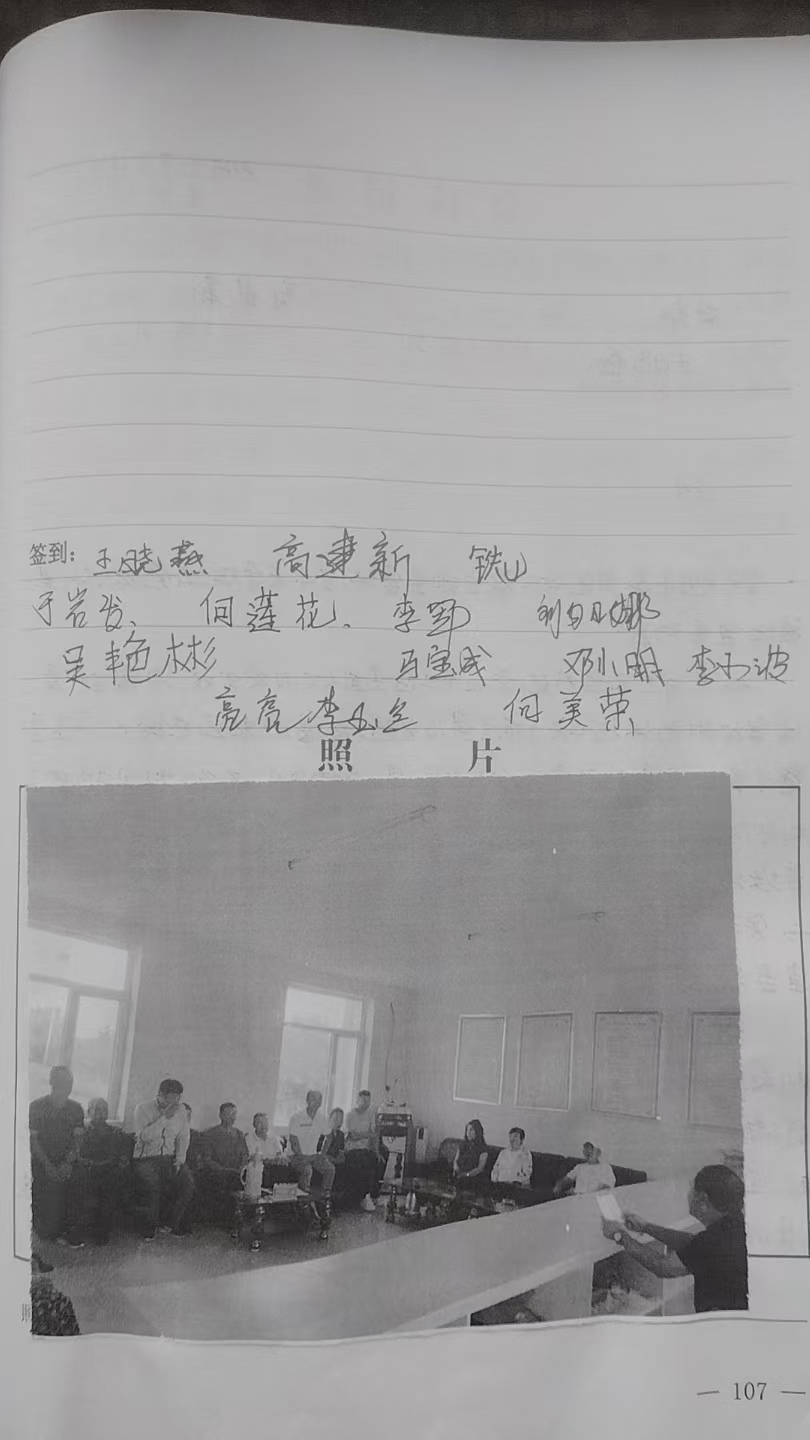 签到：王晓燕 高建新 铁山
于岩发、 何莲花、 李野
吴艳彬 马宝成 邓小明 李小波
亮亮 李玉 何美荣
照 片
— 107 —